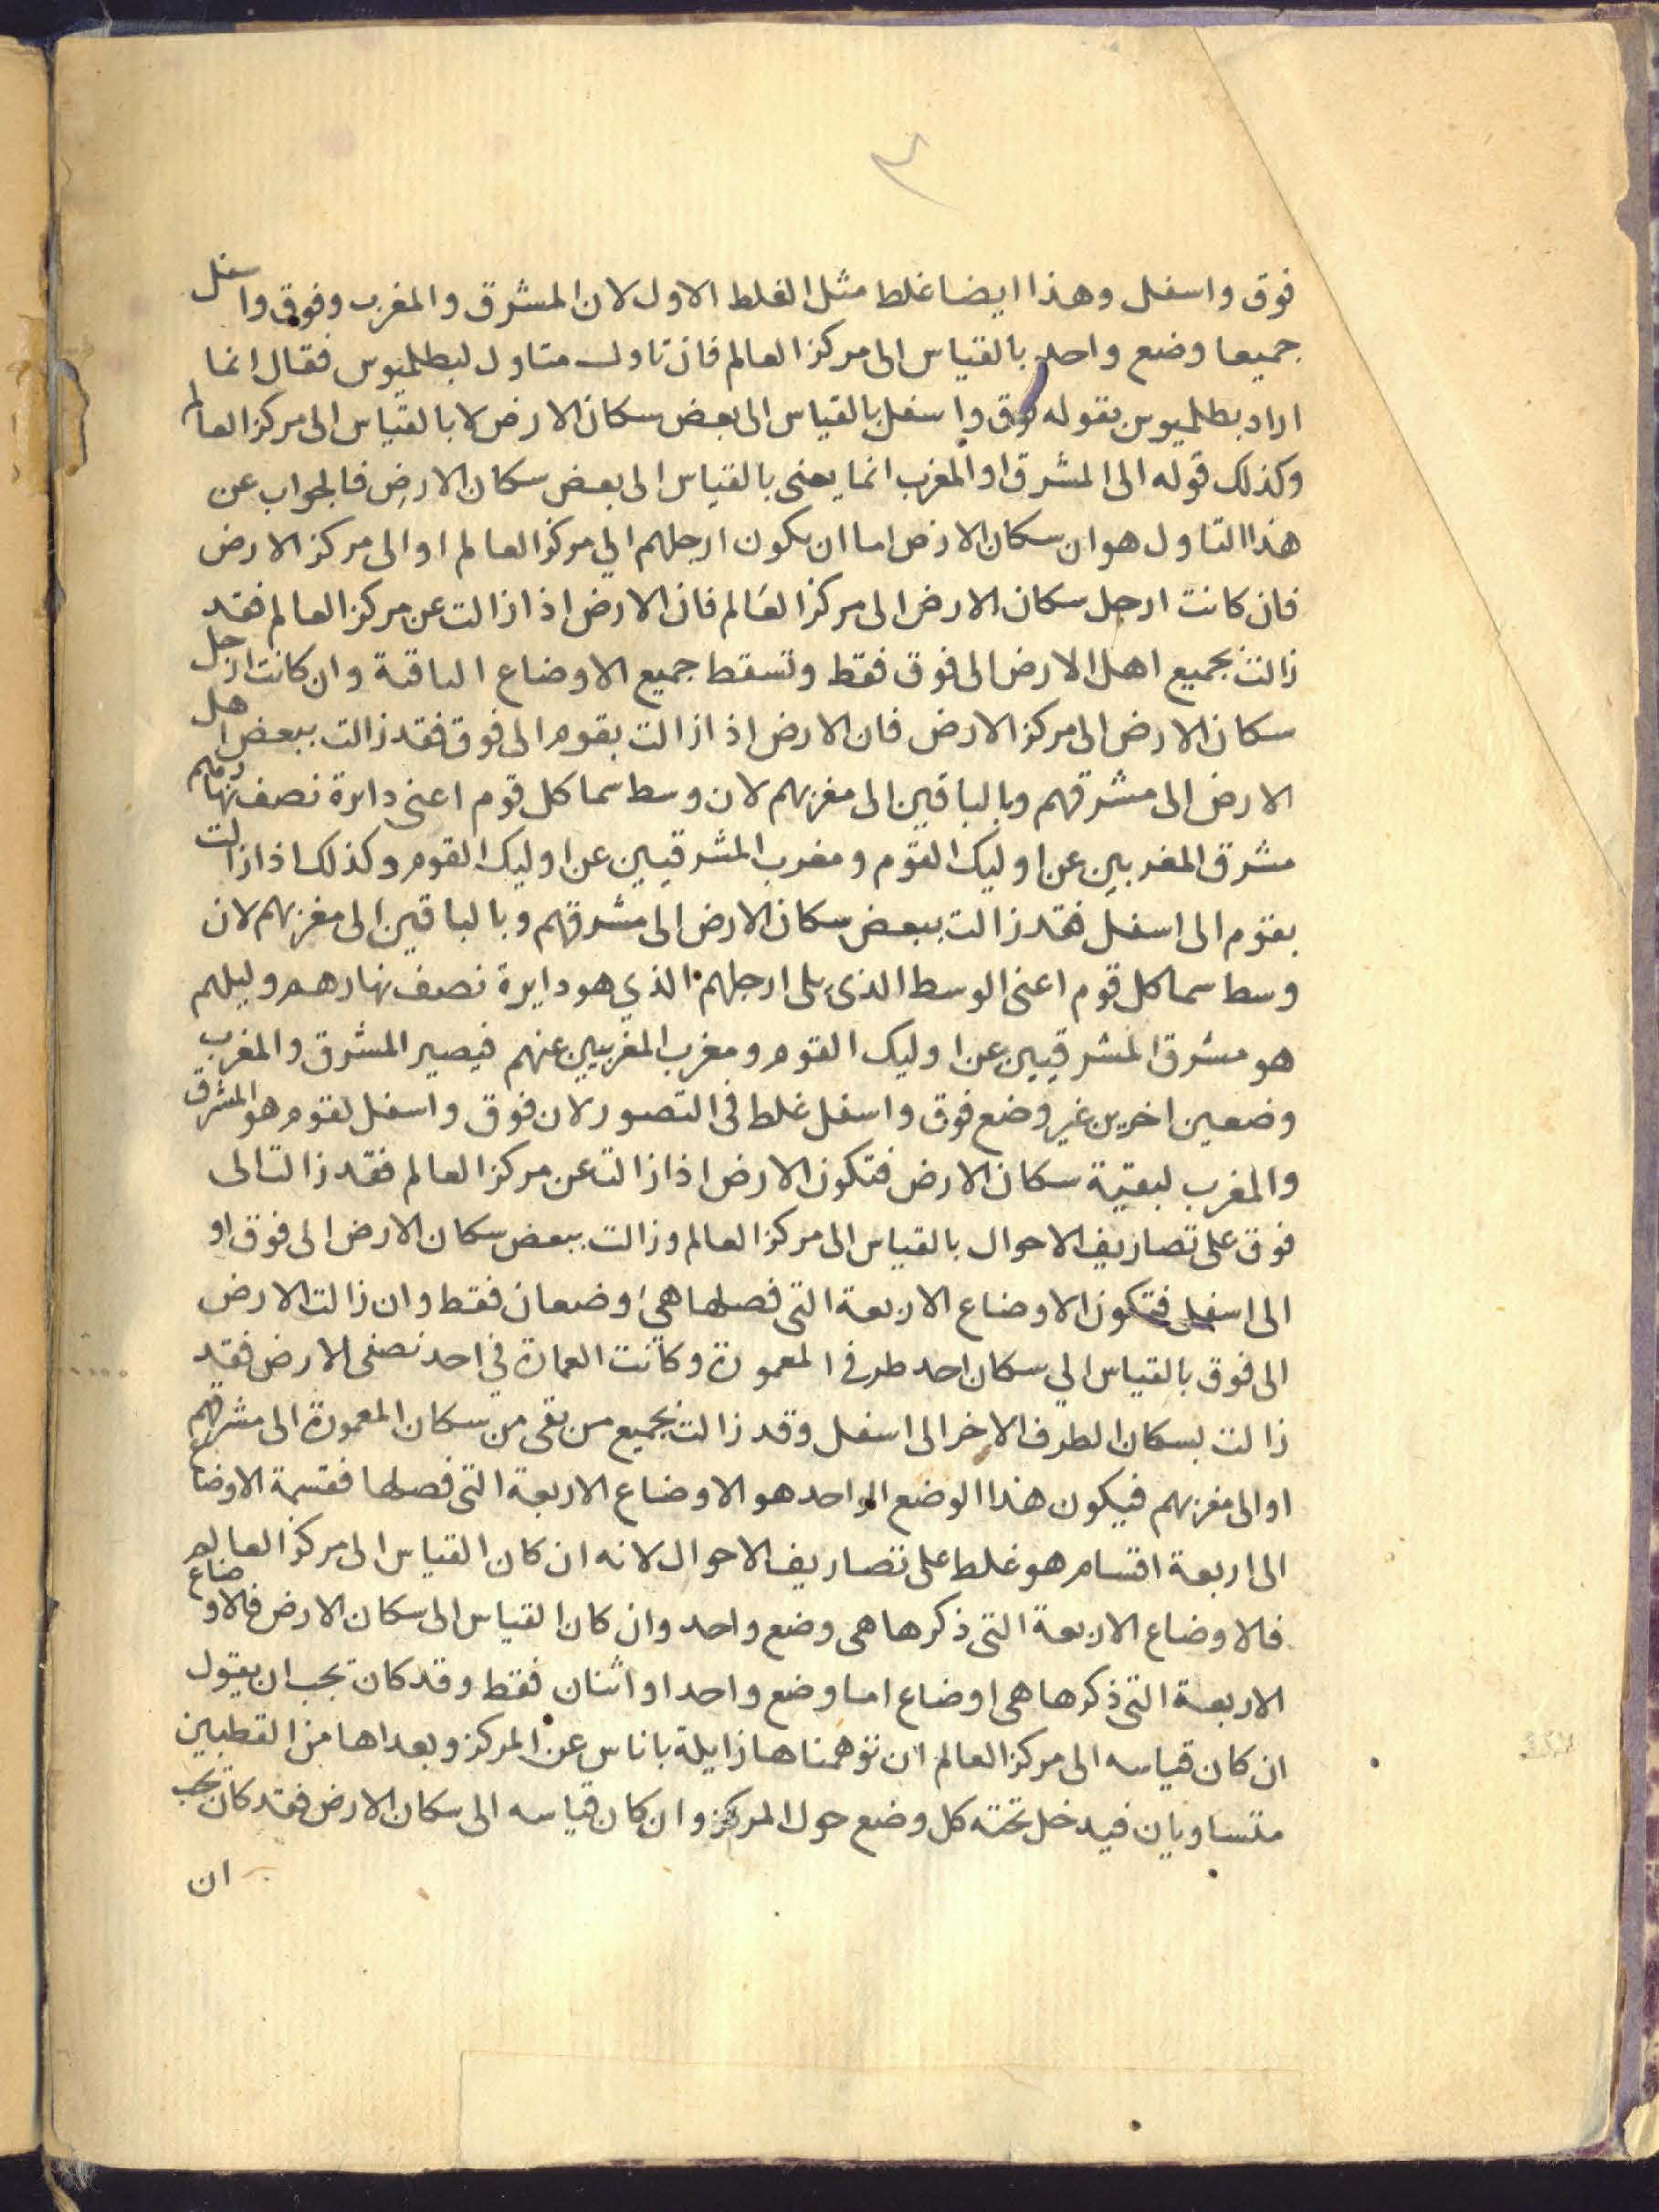 ٣
فوق واسفل وهذا ايضا غلط مثل الغلط الاول لان المشرق والمغرب وفوق واسفل
جميعا وضع واحد بالقياس الى مركز العالم فان تاول متاول لبطلميوس فقال انما
اراد بطلميوس بقوله فوق واسفل بالقياس الى بعض سكان الارض لا بالقياس الى مركز العالم
وكذلك قوله الى المشرق او المغرب انما يعنى بالقياس الى بعض سكان الارض فالجواب عن
هذا التاول هو ان سكان الارض اما ان يكون ارجلهم الي مركز العالم او الى مركز الارض
فان كانت ارجل سكان الارض الى مركز العالم فان الارض اذا زالت عن مركز العالم فقد
زالت بجميع اهل الارض الى فوق فقط وتسقط جميع الاوضاع الباقية وان كانت ارجل
سكان الارض الى مركز الارض فان الارض اذا زالت بقوم الى فوق فقد زالت ببعض اهل
الارض الى مشرقهم وبالباقين الى مغربهم لان وسط سما كل قوم اعنى دايرة نصف نهارهم
مشرق المغربين عن اوليك القوم ومغرب المشرقيين عن اوليك القوم وكذلك اذا زالت
بقوم الى اسفل فقد زالت ببعض سكان الارض الى مشرقهم وبالباقين الى مغربهم لان
وسط سما كل قوم اعنى الوسط الذى يلى ارجلهم الذي هو دايرة نصف نهارهم وليلهم
هو مشرق المشرقيين عن اوليك القوم ومغرب المغربيين عنهم فيصير المشرق والمغرب
وضعين اخرين غير وضع فوق واسفل غلط فى التصور لان فوق واسفل لقوم هو المشرق
والمغرب لبقية سكان الارض فتكون الارض اذا زالت عن مركز العالم فقد زالت الى
فوق على تصاريف الاحوال بالقياس الى مركز العالم وزالت ببعض سكان الارض الى فوق او
الى اسفل فتكون الاوضاع الاربعة التى فصلها هى وضعان فقط وان زالت الارض
الى فوق بالقياس الي سكان احد طرفى المعمورة وكانت العمارة في احد نصفى الارض فقد
زالت بسكان الطرف الاخر الى اسفل وقد زالت بجميع من بقى من سكان المعمورة الى مشرقهم
او الى مغربهم فيكون هذا الوضع الواحد هو الاوضاع الاربعة التى فصلها فقسمة الاوضاع
الى اربعة اقسام هو غلط على تصاريف الاحوال لانه ان كان القياس الى مركز العالم
فالاوضاع الاربعة التى ذكرها هى وضع واحد وان كان القياس الى سكان الارض فالاوضاع
الاربعة التى ذكرها هى اوضاع اما وضع واحد او اثنان فقط وقد كان يجب ان يقول
ان كان قياسه الى مركز العالم ان توهمناها زايلة باناس عن المركز وبعداها من القطبين
متساويان فيدخل تحته كل وضع حول المركز وان كان قياسه الى سكان الارض فقد كان يجب
ان